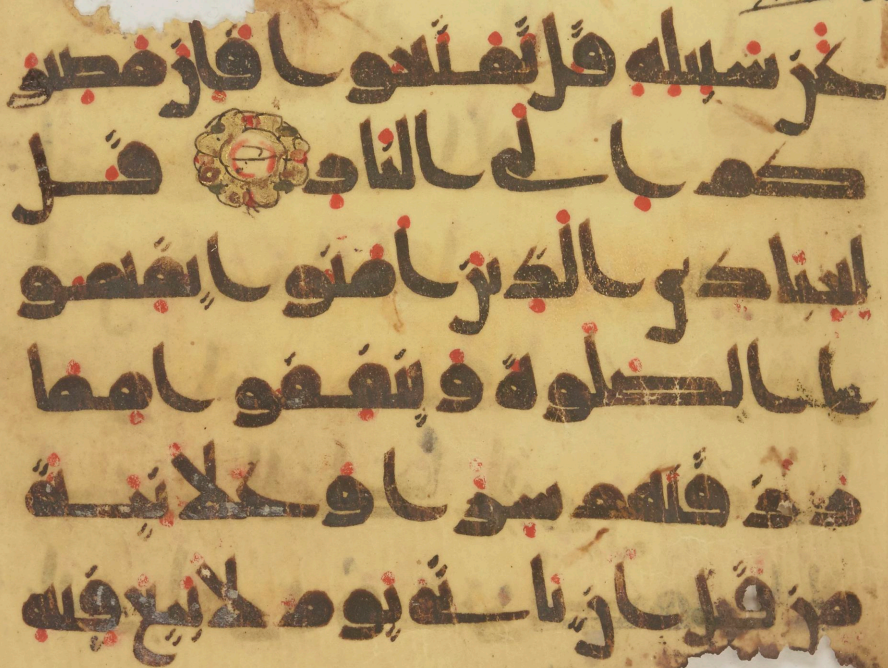 عن سبيله قل تمتعوا فان مصير
كم الى النار قل
لعبادي الذين امنوا يقيمو
ا الصلوة وينفقوا مما
رزقنهم سرا وعلانية
من قبل ان ياتي يوم لا بيع فيه